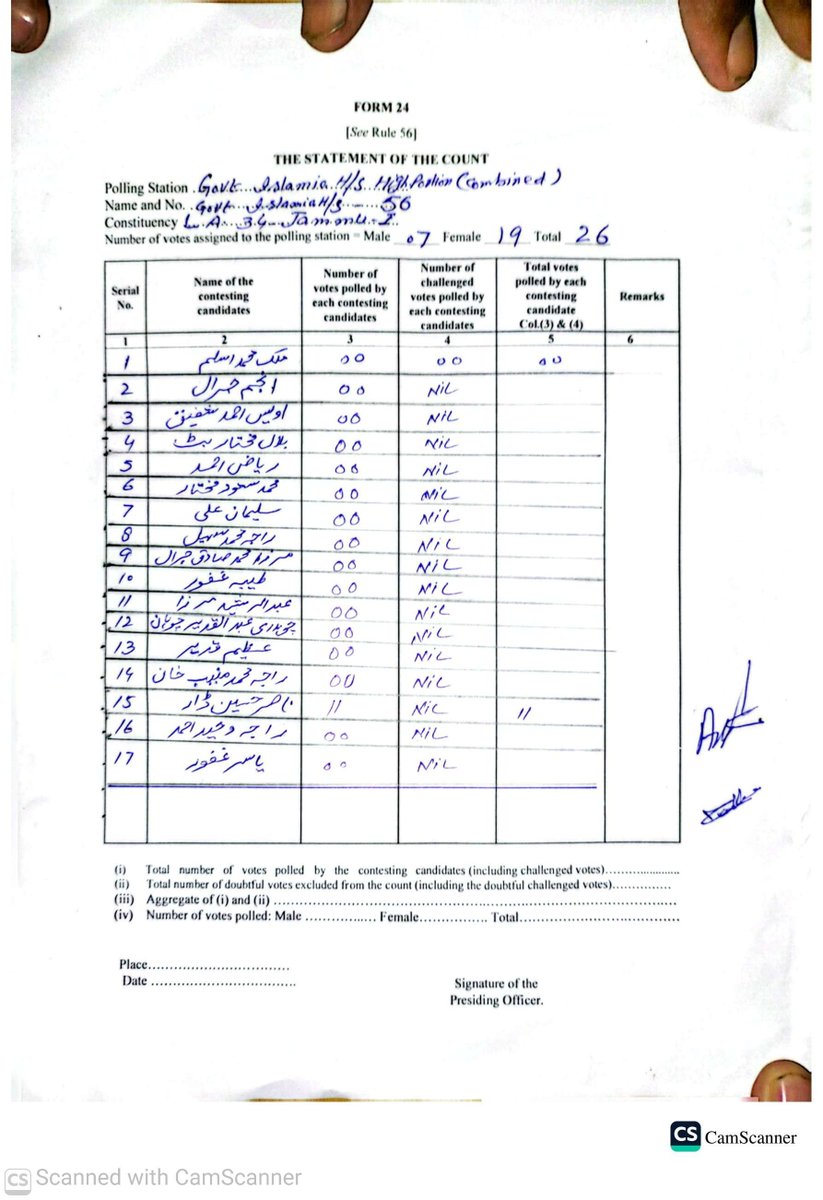 FORM 24
[See Rule 56]
THE STATEMENT OF THE COUNT
Polling Station . Govt...Islamia H/S High Portion (Combined)
Name and No. .Govt...Islamia H/S ---- 56
Constituency L.A. 34 Jammu-I
Number of votes assigned to the polling station = Male 07 Female 19 Total 26
Serial No. Name of the contesting candidates Number of votes polled by each contesting candidates Number of challenged votes polled by each contesting candidates Total votes polled by each contesting candidate Col.(3) & (4) Remarks
1 2 3 4 5 6
1 ملک محمد اسلم 00 00 00
2 انجم جرال 00 NiL
3 اویس احمد شفیق 00 NiL
4 بلال مختار بٹ 00 NiL
5 ریاض احمد 00 NiL
6 محمد سعود مختار 00 NiL
7 سلیمان علی 00 NiL
8 راجہ محمد سہیل 00 NiL
9 مرزا محمد صادق جرال 00 NiL
10 طیبہ غفور 00 NiL
11 عبدالرشید مرزا 00 NiL
12 چوہدری عبدالقدیر چوہان 00 NiL
13 عظیم قدیر 00 NiL
14 راجہ محمد منیب خان 00 NiL
15 ناصر حسین ڈار 11 NiL 11
16 راجہ وحید احمد 00 NiL
17 یاسر غفور 00 NiL
(i) Total number of votes polled by the contesting candidates (including challenged votes)......................
(ii) Total number of doubtful votes excluded from the count (including the doubtful challenged votes)...............
(iii) Aggregate of (i) and (ii) ..........................................................
(iv) Number of votes polled: Male ................. Female................ Total......................................
Place.................................
Date ..................................
Signature of the
Presiding Officer.
CS CamScanner
CS Scanned with CamScanner